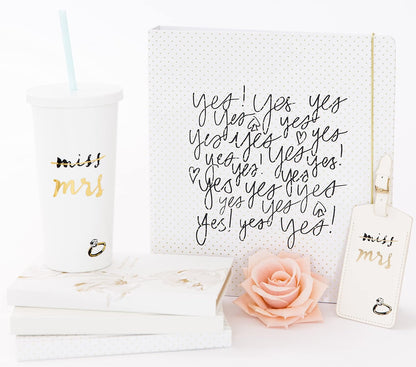 miss
mrs
yes! yes yes
yes yes
yes yes yes
yes yes! yes yes!
yes yes yes
yes yes
yes! yes yes!
miss
mrs